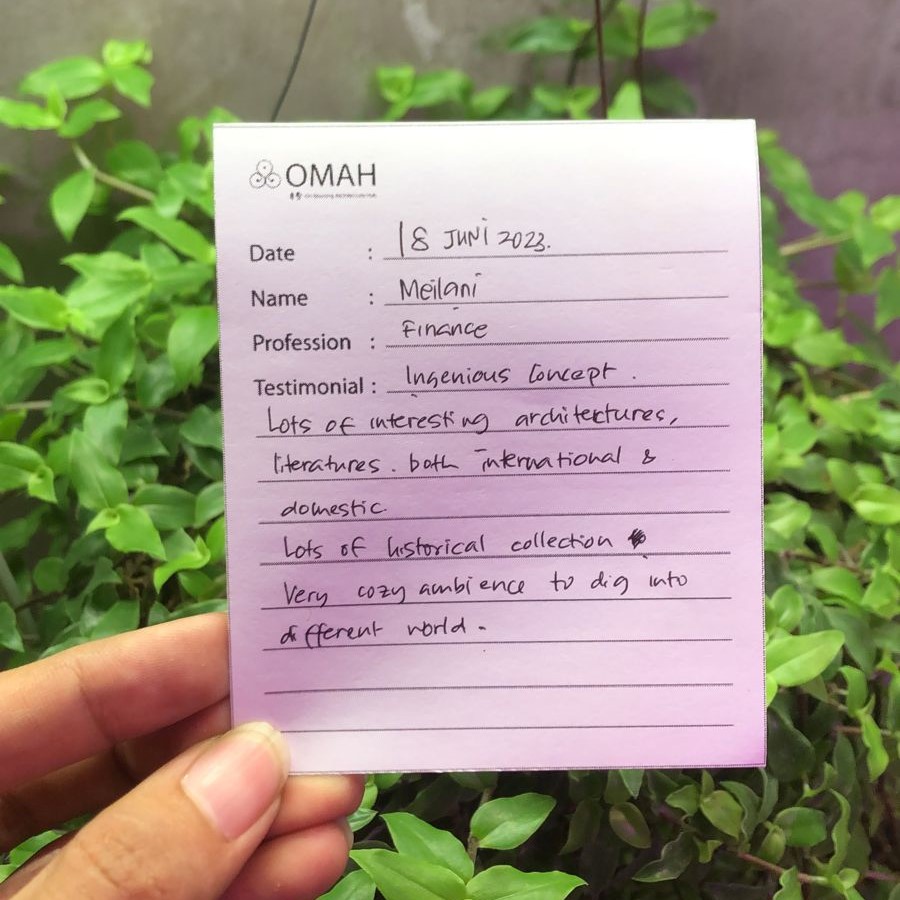 OMAH
Date : 18 JUNI 2023.
Name : Meilani
Profession : Finance
Testimonial : Ingenious Concept.
Lots of interesting architectures,
literatures. both international &
domestic.
Lots of historical collection
Very cozy ambience to dig into
different world.